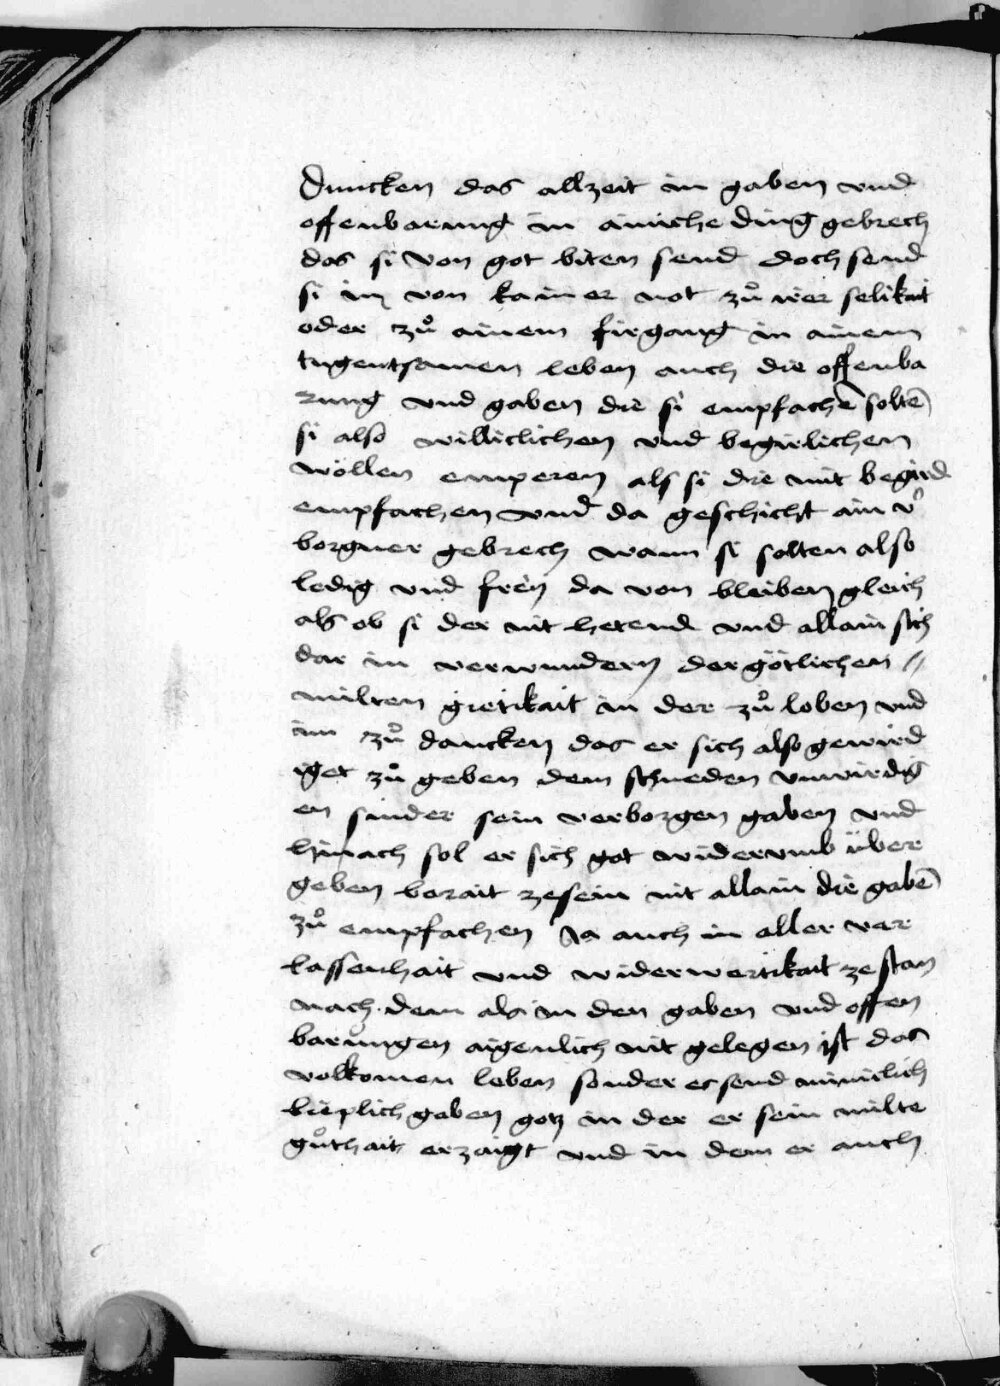 Duncken das allzeit im gaben vnd
offenbarung in ainiche ding gebrech
das si von got biten send doch send
si im von kainer not zuͦ irer selikait
oder zuͦ ainem firgang in ainem
tugentsamen leben auch die offenba
rung vnd gaben die si empfachē soltē
si also williclichen vnd begirlichen
wöllen emperen als si die mit begird
empfachen vnd da geschicht ain v̾
borgner gebrech wann si solten also
ledig vnd freÿ da von bleiben gleich
als ob si der nit hetend vnd allain sich
dar in verwundern der götlichen //
milten gietikait in der zuͦ loben vnd
im zuͦ dancken das er sich also gewird
iget zuͦ geben dem schneden vnwirdig
en sinder sein verborgen gaben vnd
hinnach sol er sich got widerumb über
geben berait zesein nit allain die gabē
zuͦ empfachen Ja auch in aller ver
lassenhait vnd widerwertikait ze stan
nach dem als in den gaben vnd offen
barungen aigenlich nit gelegen ist das
volkomen leben sonder es send miniclich
lieplich gaben gotz in der er sein milte
guͦthait erzaigt vnd in dem er auch